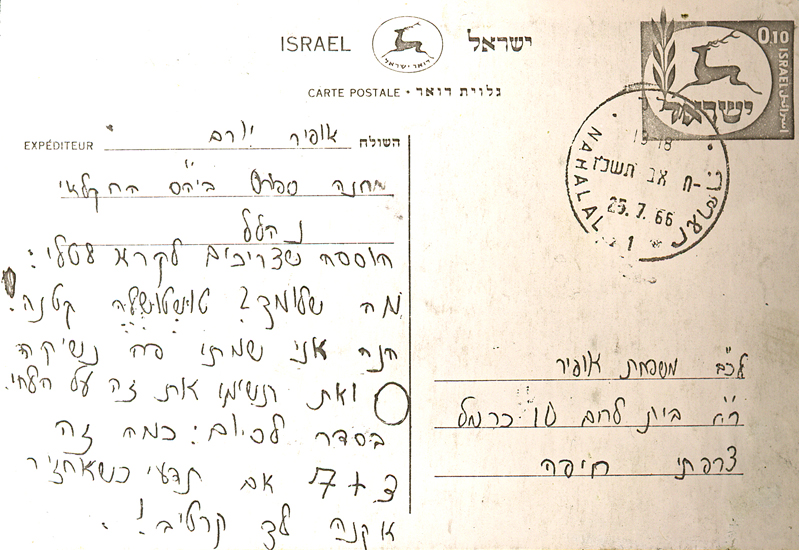 ISRAEL דואר ישראל ישראל
CARTE POSTALE • גלוית דואר
0.10
ISRAEL
ישראל
NAHALAL
19-18
ח- אב תשכ"ו
25.7.66
1
EXPÉDITEUR אופיר יורם השולח
מחנה ביה"ס החקלאי
נהלל
תוספת שצריכים לקרא
מה שלומך? קטנה.
הנה אני שמתי פה נשיקה
ואת תשימי את זה על הלחי.
בסדר לסיום: כמה זה
3+7 אם תדעי כשאחזיר
אקנה לך קרטיב!
לכב' משפחת אופיר
רח' בית לחם 10 כרמל
צרפתי חיפה